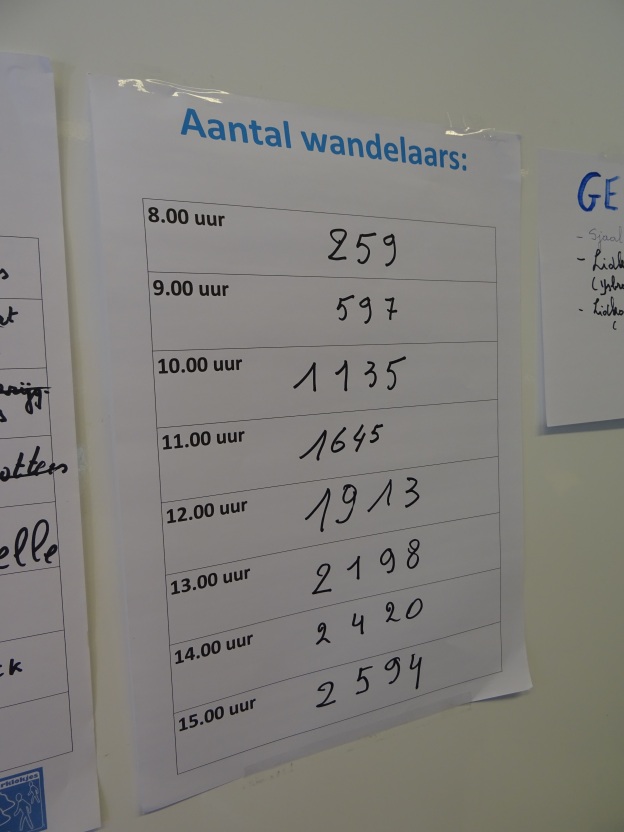 Aantal wandelaars:
8.00 uur 259
9.00 uur 597
10.00 uur 1135
11.00 uur 1645
12.00 uur 1913
13.00 uur 2198
14.00 uur 2420
15.00 uur 2594
elle
ck
GE
- Sjaal
- Lidk
- Lidko
(